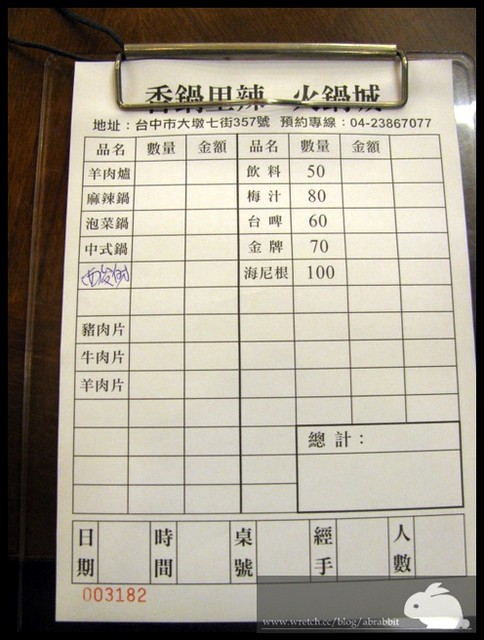 香鍋里辣 火鍋城
地址：台中市大墩七街357號 預約專線：04-23867077
品名 數量 金額 品名 數量 金額
羊肉爐 飲料 50
麻辣鍋 梅汁 80
泡菜鍋 台啤 60
中式鍋 金牌 70
海尼根 100
豬肉片
牛肉片
羊肉片
總計：
日期 時間 桌號 經手 人數
003182
www.wretch.cc/blog/abrabbit